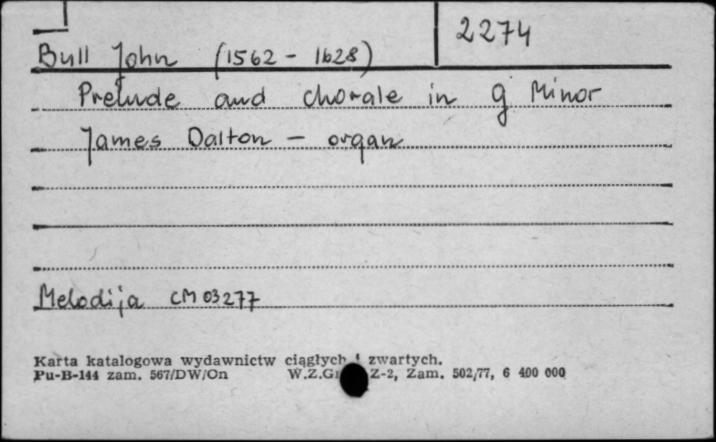 2274
Bull John (1562 - 1628)
Prelude and chorale in g minor
James Dalton - organ
Melodija CM 03277
Karta katalogowa wydawnictw ciągłych i zwartych.
Pu-B-144 zam. 567/DW/On W.Z.Gr Z-2, Zam. 502/77, 6 400 000